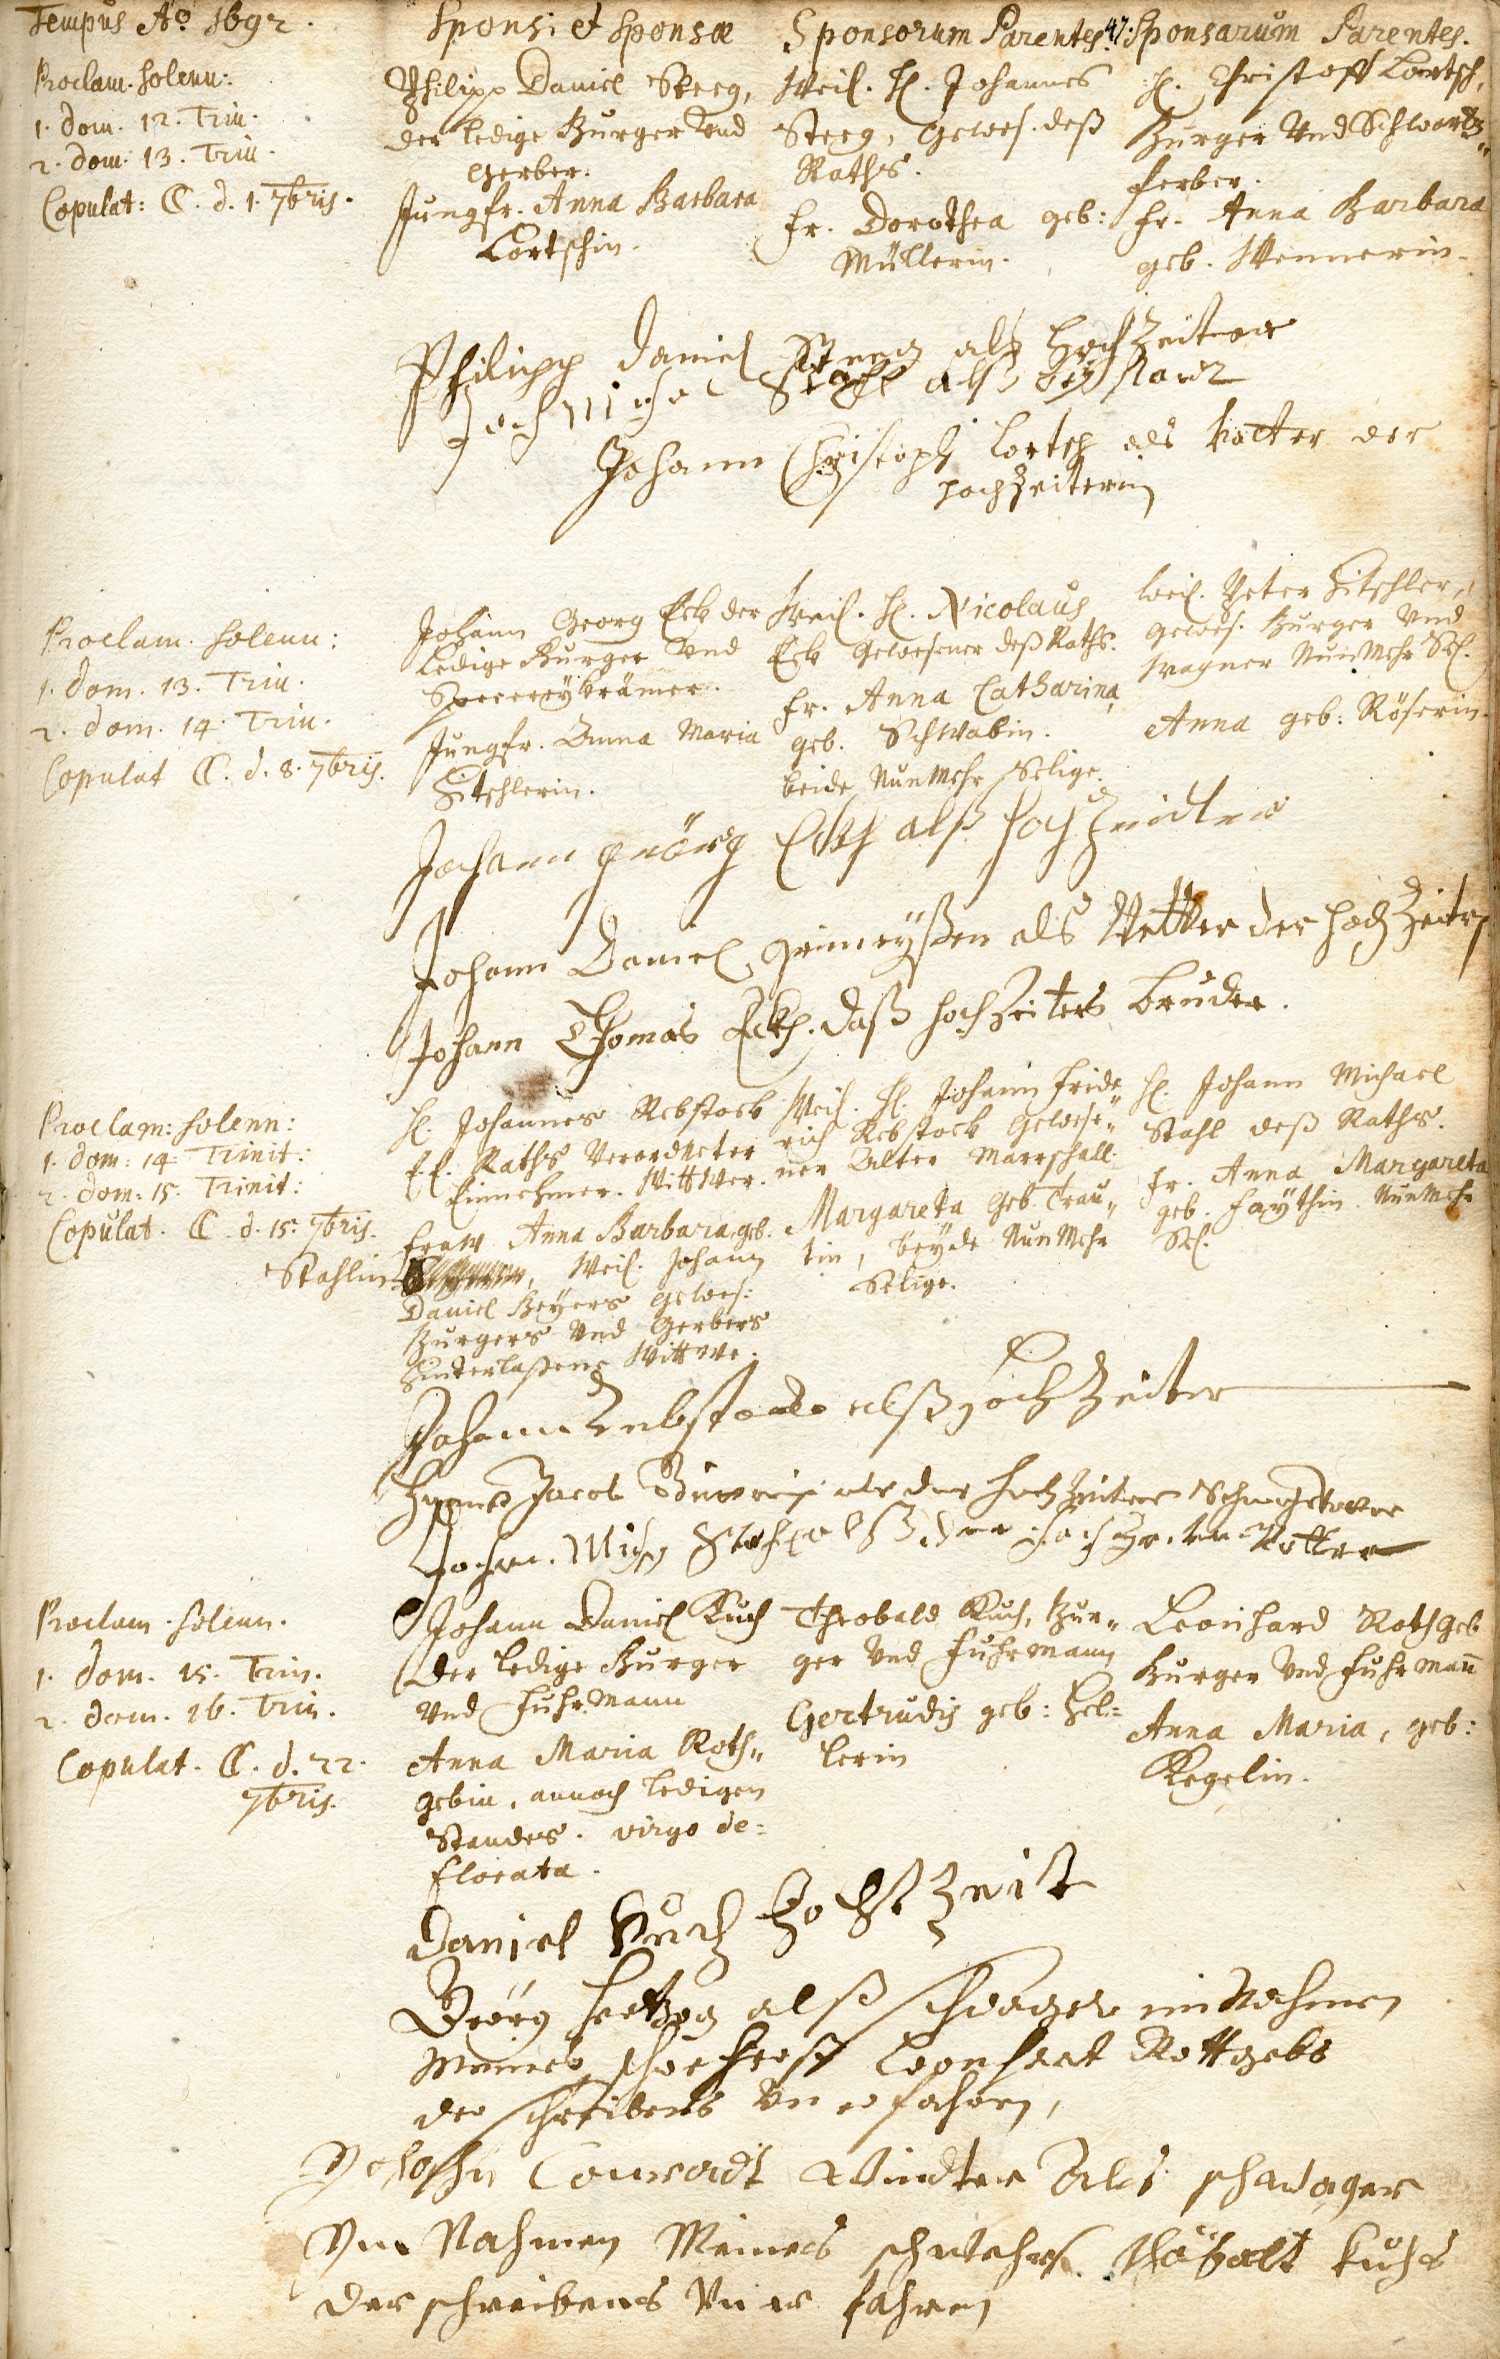 Tempus Aō 1692.
Sponsi et Sponsæ
Sponsorum Parentes.
47.
Sponsarum Parentes.
Proclam. solenn:
1. Dom. 12. Trin.
2. Dom. 13. Trin.
Copulat: C. d. 1. 7bris.
Philipp Daniel Steeg,
der ledige Burger Vnd
Gerber.
Jungfr. Anna Barbara
Lortschin.
Weil. H. Johannes
Steeg, Gewes. deß
Raths.
Fr. Dorothea geb:
Müllerin.
H. Christoff Lortsch,
Burger Vnd Schwartz„
ferber.
Fr. Anna Barbara
geb. Wennerin.
Philipp Daniel Steeg als HochZeiter
Stahl alß beystandt
Johann Christoph Lortsch als Vatter der
HochZeiterin
Proclam. solenn:
1. Dom. 13. Trin.
2. Dom. 14. Trin.
Copulat C. d. 8. 7bris.
Johann Georg Eck der
Ledige Burger Vnd
Specereykrämer.
Jungfr. Anna Maria
Zitschlerin.
Weil. H. Nicolaus
Eck Gewesener deß Raths.
Fr. Anna Catharina,
geb. Schwabin.
beide NunMehr Selige.
Weil. Peter Zitschler,
Gewes. Burger Vnd
Wagner NunMehr Sel.
Anna geb: Röserin.
Johann Geörg Eckh alß HochZeidter
Johann Daniel Grimeyßen als Vetter der HochZeitn
Johann Thomas Eckh. daß HochZeiters Bruder.
Proclam: solenn:
1. Dom: 14. Trinit:
2. Dom: 15. Trinit:
Copulat. C. d. 15. 7bris.
H. Johannes Rebstock
EE. Raths Verordneter
Einnehmer. Wittwer.
Fraw Anna Barbara, geb.
Stahlin, Weil. Johann
Daniel Beyers Gewes:
Burgers Vnd Gerbers
Hinterlaßene Wittwe.
Weil. H. Johann Fride„
rich Rebstock Gewese„
ner Alter Marschall.
Margareta Geb. Trau„
tin, beyde NunMehr
Selige.
H. Johann Michael
Stahl deß Raths.
Fr. Anna Margareta
geb. Faythin. NunMehr
Sel.
Johann Rebstock alß HochZeiter
Jacob als der HochZeiter Schwager
Johan. Mich Stahl alß der HochZeiterin Vatter
Proclam. solenn.
1. Dom. 15. Trin.
2. Dom. 16. Trin.
Copulat. C. d. 22.
7bris.
Johann Daniel Kuch
Der ledige Burger
Vnd Fuhrmann
Anna Maria Roth„
gebin, annoch ledigen
Standes. virgo de=
florata.
Theobald Kuch, Bur„
ger Vnd Fuhrmann
Gertrudis geb: Hel=
lerin
Leonhard Rothgeb
Burger Vnd Fuhrmann
Anna Maria, geb:
Kegelin.
Daniel Kuch
Geörg Hertzog alß schwager im Nahmen
Meines Leonhart Rottgebs
der schreibens Vnerfahren,
Conradt Windter Als schwager
Ym Nahmen Meines Thöbalt Kuchs
der schreibens Vner fahren